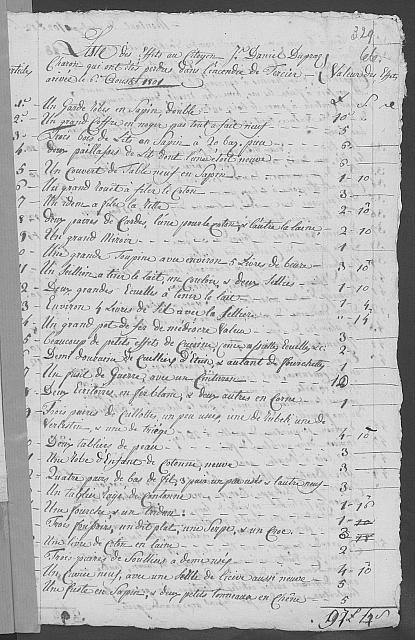 329
66.
Liste des Effets au Citoyen J. Daniel Dupraz
Charon qui ont été perdus dans l'incendie de
arivée le 6e Aoust 1801
Valeur des Effets
1° Un Garde robes en Sapin, double 10
2° Un grand Coffre en noyer pas tout a fait neuf 5
3 Trois bois de Lits en Sapin à 20 baz. piece 6
4 deux paillasses de Lit dont l'une étoit neuve 6
5 Un Couvert de Table neuf en Sapin 5
6 Un grand rouët a filer le Coton 3
7 Un idem a filer la Ritte 2 - 10
8 Deux paires de Cardes, l'une pour le coton & l'autre la laine 2
9 Un grand Miroir 1 - 10
0 Une grande avec environ 5 Livres de beure 3 - 10
1 Un Seillon a tirer le lait, un Couloir, & deux Selles 1 - 10
2 Deux grandes Ecuelles à tenir le lait 1 - 4
3 Environ 4 Livres de Sel avec la Seliere " - 14
4 Un grand pot de fer de mediocre Valeur 3
5 beaucoup de petits effets de Cuisine, come assiettes, écuelles, &c. 2
6 Demi douzaine de Cuilliers d'Etain, & autant de fourchettes 1
7 Un fusil de Guerre, avec un Ceinturon 12
8 Deux Ecritoires en fer blanc, & deux autres en Corne 1
9 Trois paires de Culottes, un peu usées, une de une de
& une de triège 4 - 10
0 Deux tabliers de peau 3
1 Une robe d'Enfant de Cotonne, neuve 3
2 Quatre paires de bas de fil, 3 paires un peu usés & l'autre neuf 3
Un tablier de Cotonne 1 - 10
Une fourche, & un trident 1
Trois un dit plat, une Serpe, & un Croc 3
Une livre de Coton en laine 2
Trois paires de Souliers a demi usés 4 - 10
Un Cuvier neuf, avec une Seille de lissive aussi neuve 5
Un fuste en Sapin, & deux petits Tonneaux en Chêne 5
97 4